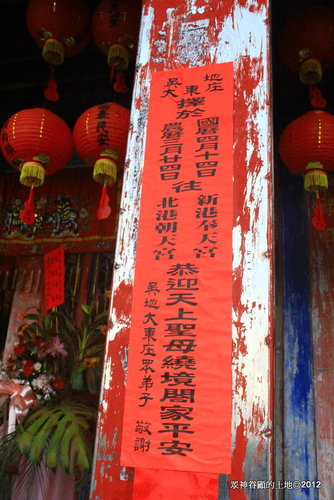 吳地大東庄
擇於
國曆四月十四日
農曆三月廿四日
往
新港奉天宮
北港朝天宮
恭迎天上聖母繞境閤家平安
吳地大東庄眾弟子 敬謝
泰民安
眾神眷顧的土地©2012